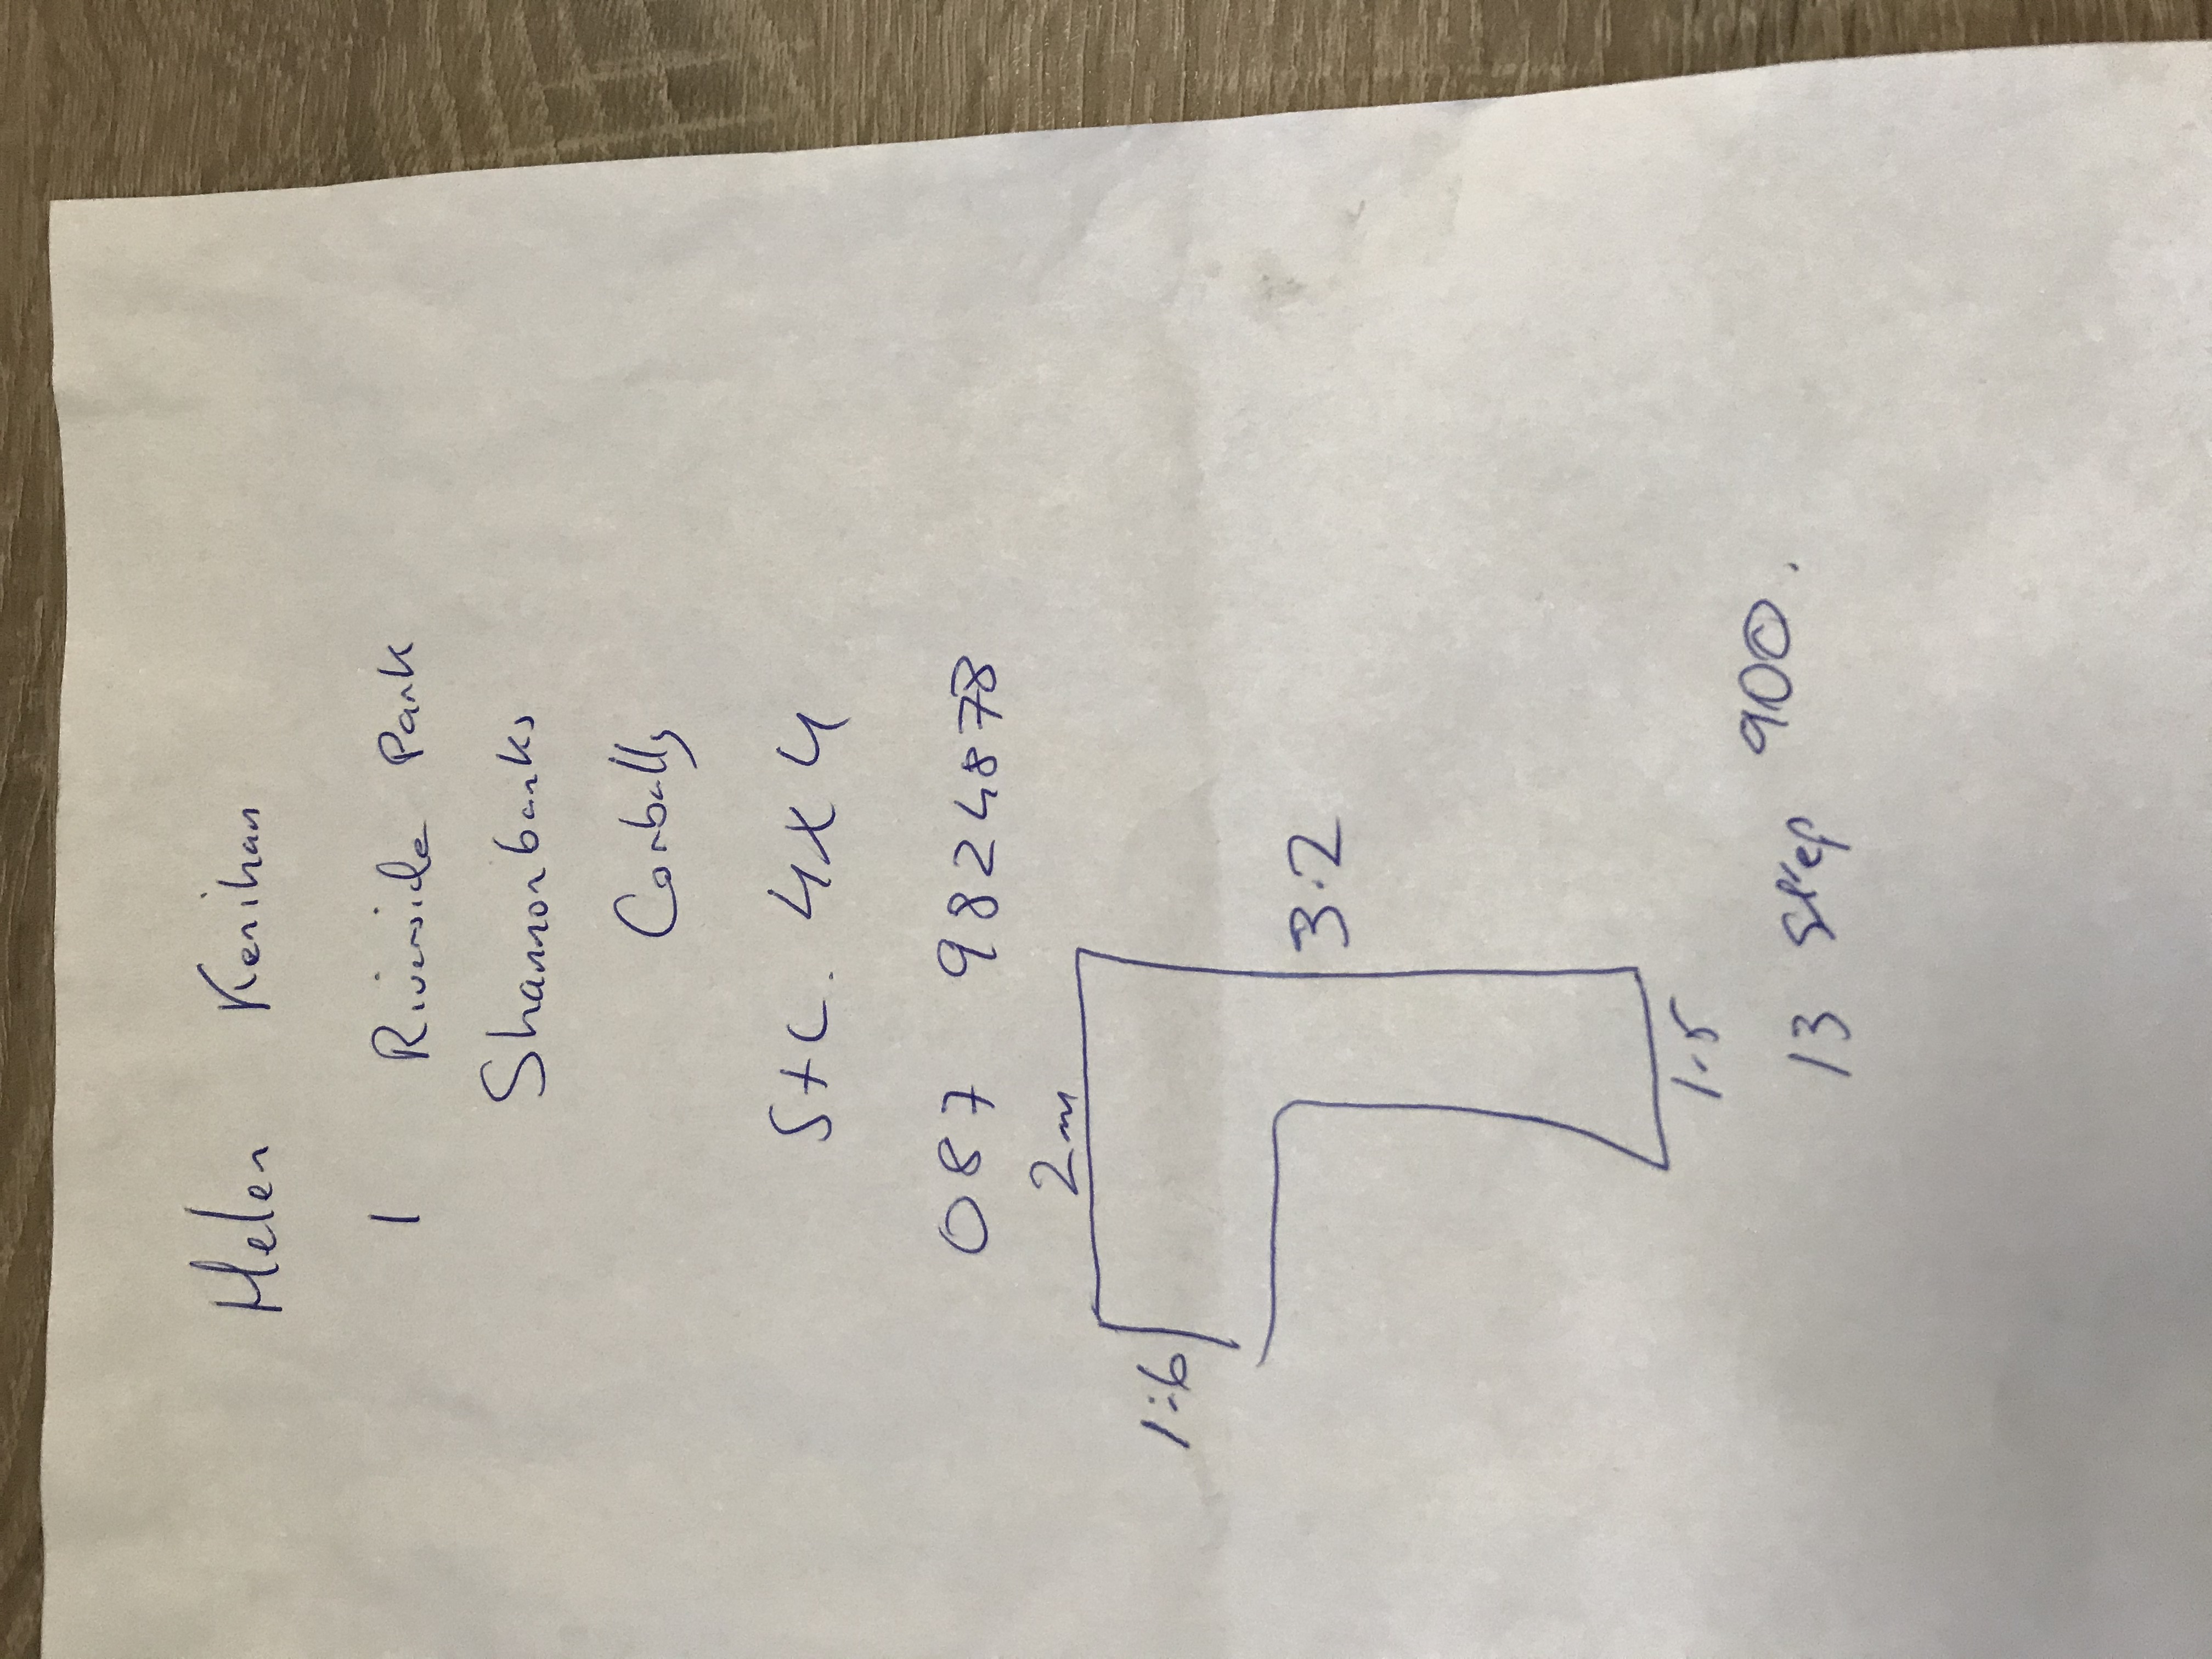 Helen Kerihan
1 Riverside Park
Shannonbanks
Corbally
S+L. 4x4
087 9824878
2m
1.6
3.2
1.5
13 step 900.